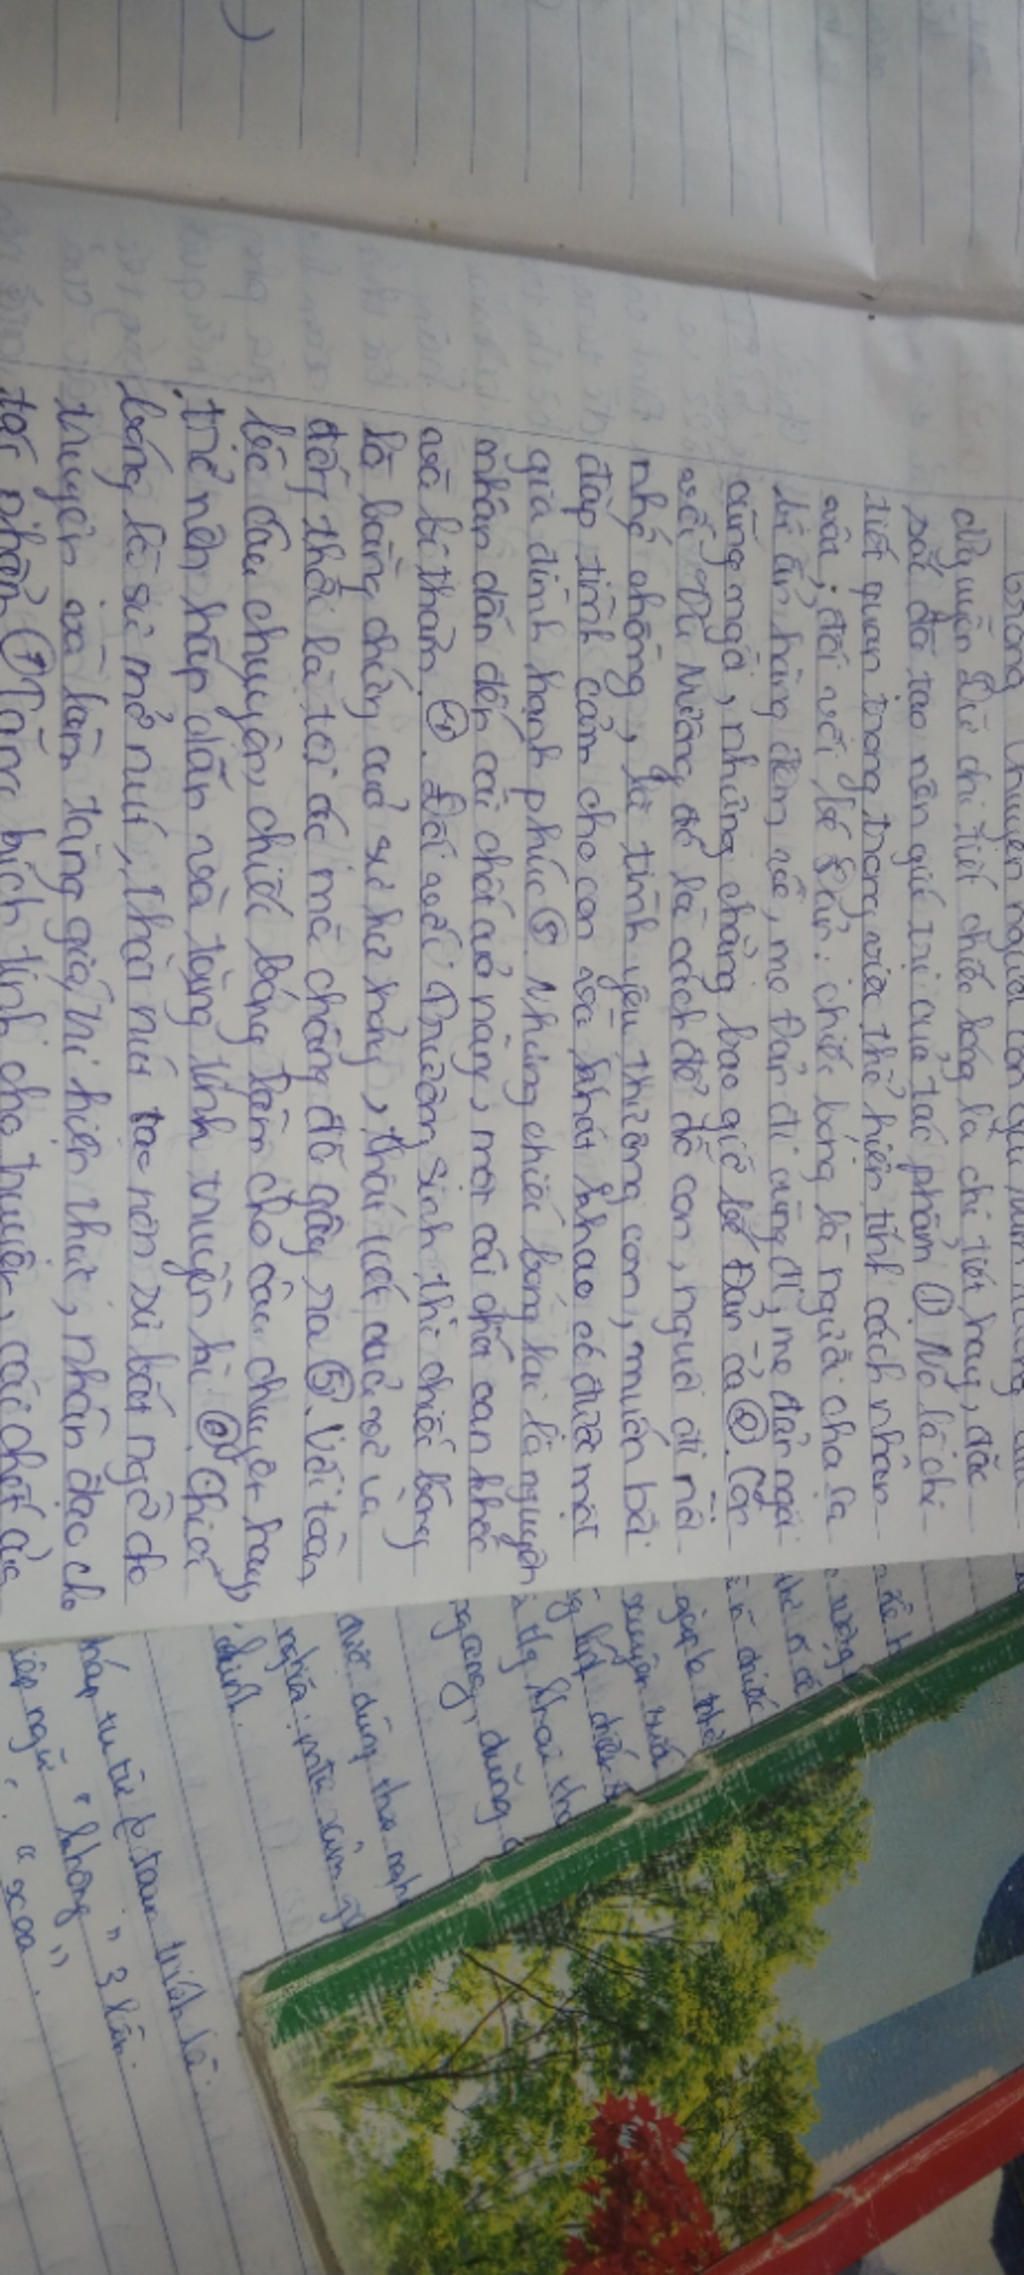 trong truyện người con gái nam
Nguyễn Dữ chi tiết chiếc bóng là chi tiết hay, đặc
sắc đã tạo nên giá trị của tác phẩm ① Nó là chi
tiết quan trọng trong việc thể hiện tính cách nhân
vật, đối với bé Đản: chiếc bóng là người cha lạ
bí ẩn hàng đêm về, mẹ Đản đi cũng đi, mẹ đản ngồi
cũng ngồi, nhưng chẳng bao giờ bế Đản cả ②. Còn
với Vũ Nương đó là cách để dỗ con, nguôi đi nỗi
nhớ chồng, là tình yêu thương con, muốn bù
đắp tình cảm cho con và khát khao có được một
gia đình hạnh phúc ③. Nhưng chiếc bóng lại là nguyên
nhân dẫn đến cái chết của nàng, một cái chết oan khốc
và bi thảm ④. Đối với Trương Sinh thì chiếc bóng
là bằng chứng của sự hư hỏng, thất tiết của vợ và
đồng thời là tội ác mà chàng đã gây ra ⑤. Với toàn
bộ câu chuyện, chiếc bóng làm cho câu chuyện hay,
trở nên hấp dẫn và tăng tính truyền kì ⑥. Chiếc
bóng là sự mở nút, thắt nút tạo nên sự bất ngờ cho
truyện và làm tăng giá trị hiện thực, nhân đạo cho
tác phẩm ⑦ Tăm bịch tính cho truyện, cái chết của
khai
ngang, dũng
dùng theo
nghĩa:
chính.
pháp tu từ trên là
điệp ngữ "không" 3 lần.
"xoa"